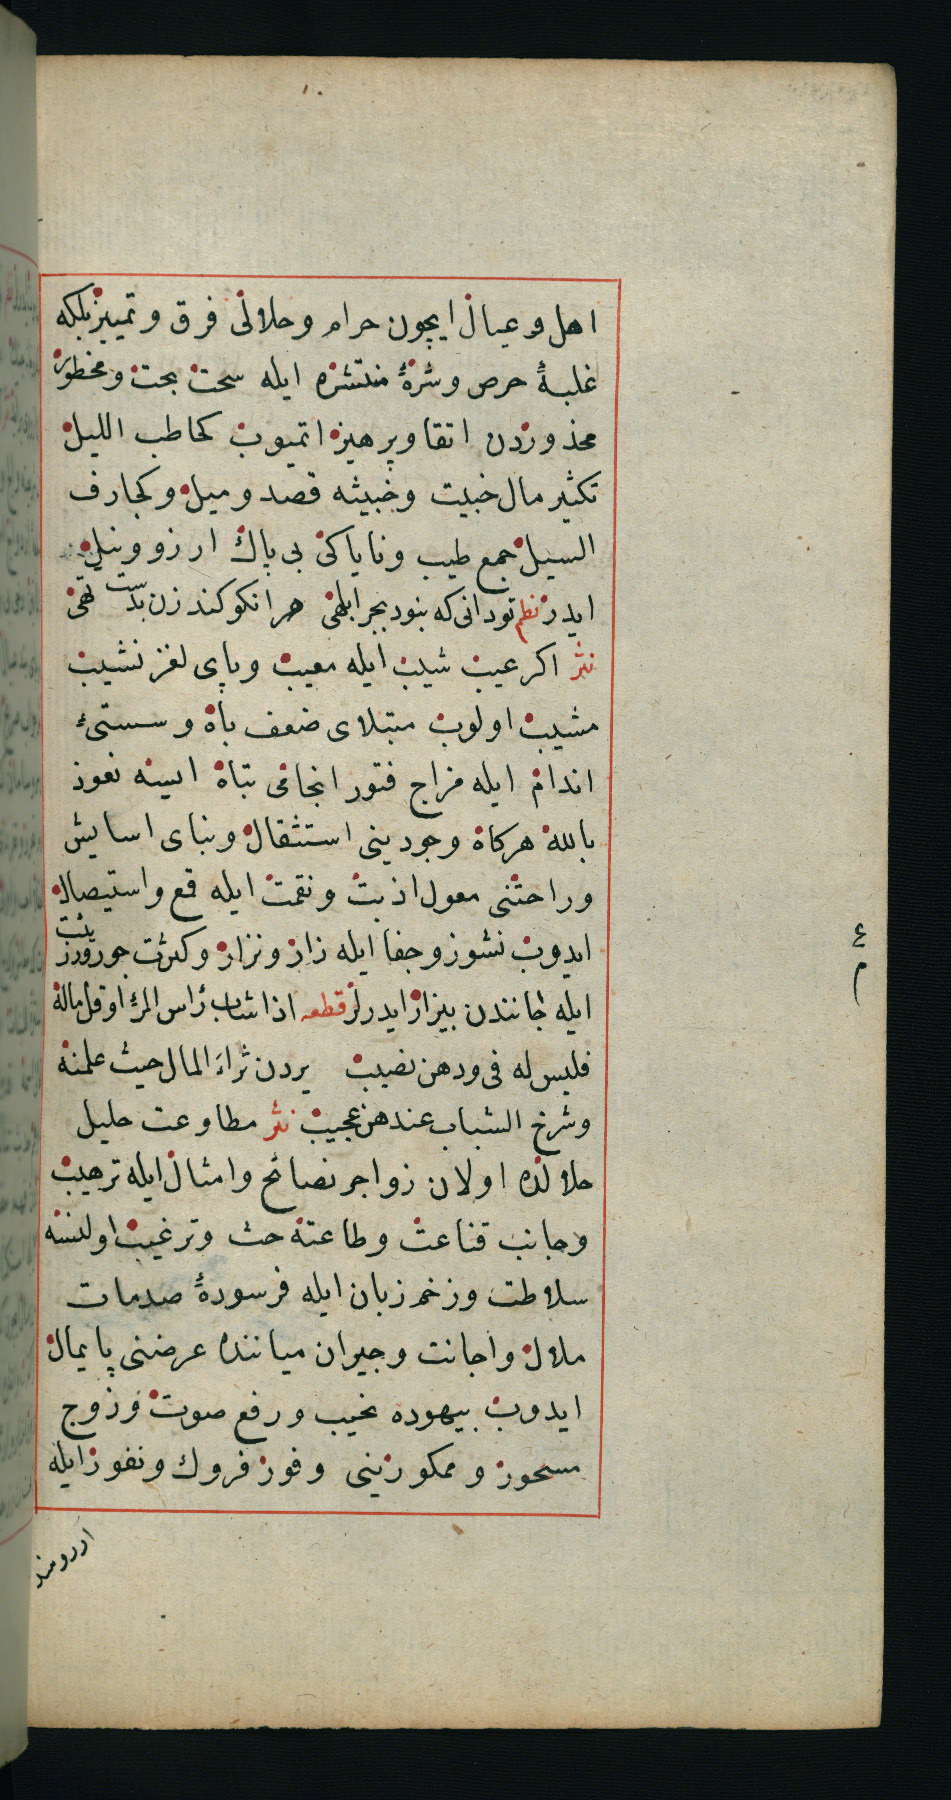 اهل و عيال ايچون حرام و حلالى فرق و تمييز بلكه
غلبهٔ حرص و شرهٔ منتشره ايله سحت بحت و مخطور
محذوردن اتقا و پرهيز اتميوب كحاطب الليل
تكثير مال خبيت و خبيثه قصد و ميل و كجارف
السيل جمع طيب و ناپاكى بى باك ارزو و نيل
ايدر نظم تو دانى كه بنود بجز ابلهى هر انكو كند زن بدست تهى
نثر اكر عيب شيب ايله معيب و پاى لغز نشيب
مشيب اولوب مبتلاى ضعف باه و سستىٔ
اندام ايله مزاج فتور انجامى تباه ايسه نعوذ
بالله هركاه وجودينى استثقال و بناى اسايش
و راحتنى معول اذيت و نقمت ايله قمع و استيصال
ايدوب نشوز و جفا ايله زار و نزار و كثرت جور
ايله جانندن بيزار ايدرلر قطعه اذا شاب رأس المرء او قل ماله
فليس له فى ودهن نصيب يردن ثراء المال حيث علمنه
و شرخ الشباب عندهن عجيب نثر مطاوعت حليل
حلالنده اولان زواجر نصائح و امثال ايله ترهيب
و جانب قناعت و طاعته حث و ترغيب اولنسه
سلاطت و زخم زبان ايله فرسودهٔ صدمات
ملال و اجانت و جيران مياننده عرضنى پايمال
ايدوب بيهوده نحيب و رفع صوت و زوج
مسحور و ممكورينى و فور فروك و نفوز ايله